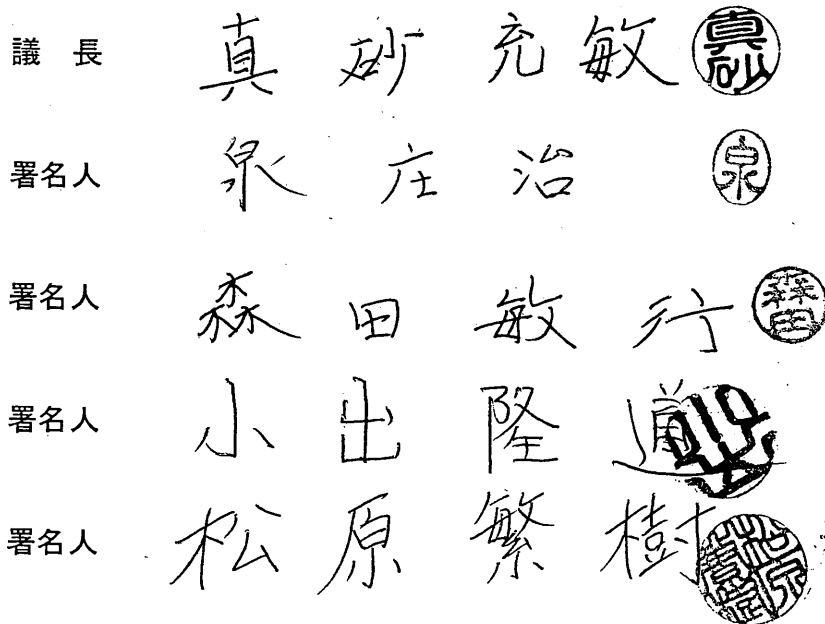 議 長 真 砂 充 敏 真砂
署名人 泉 庄 治 泉
署名人 森 田 敏 行 森田
署名人 小 出 隆 道
署名人 松 原 繁 樹